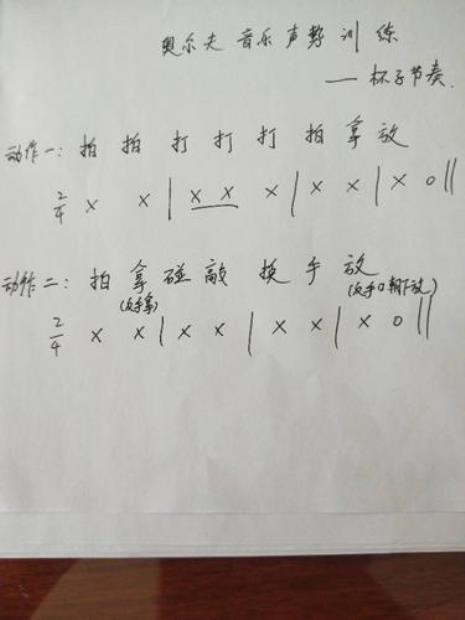 奥尔夫音乐声势训练
——杯子节奏.
动作一: 拍 拍 打 打 打 拍 拿 放
2/4 X X | X X X | X X | X 0 ||
动作二: 拍 拿 碰 敲 换 手 放
(反手拿) (反手口朝下放)
2/4 X X | X X | X X | X 0 ||